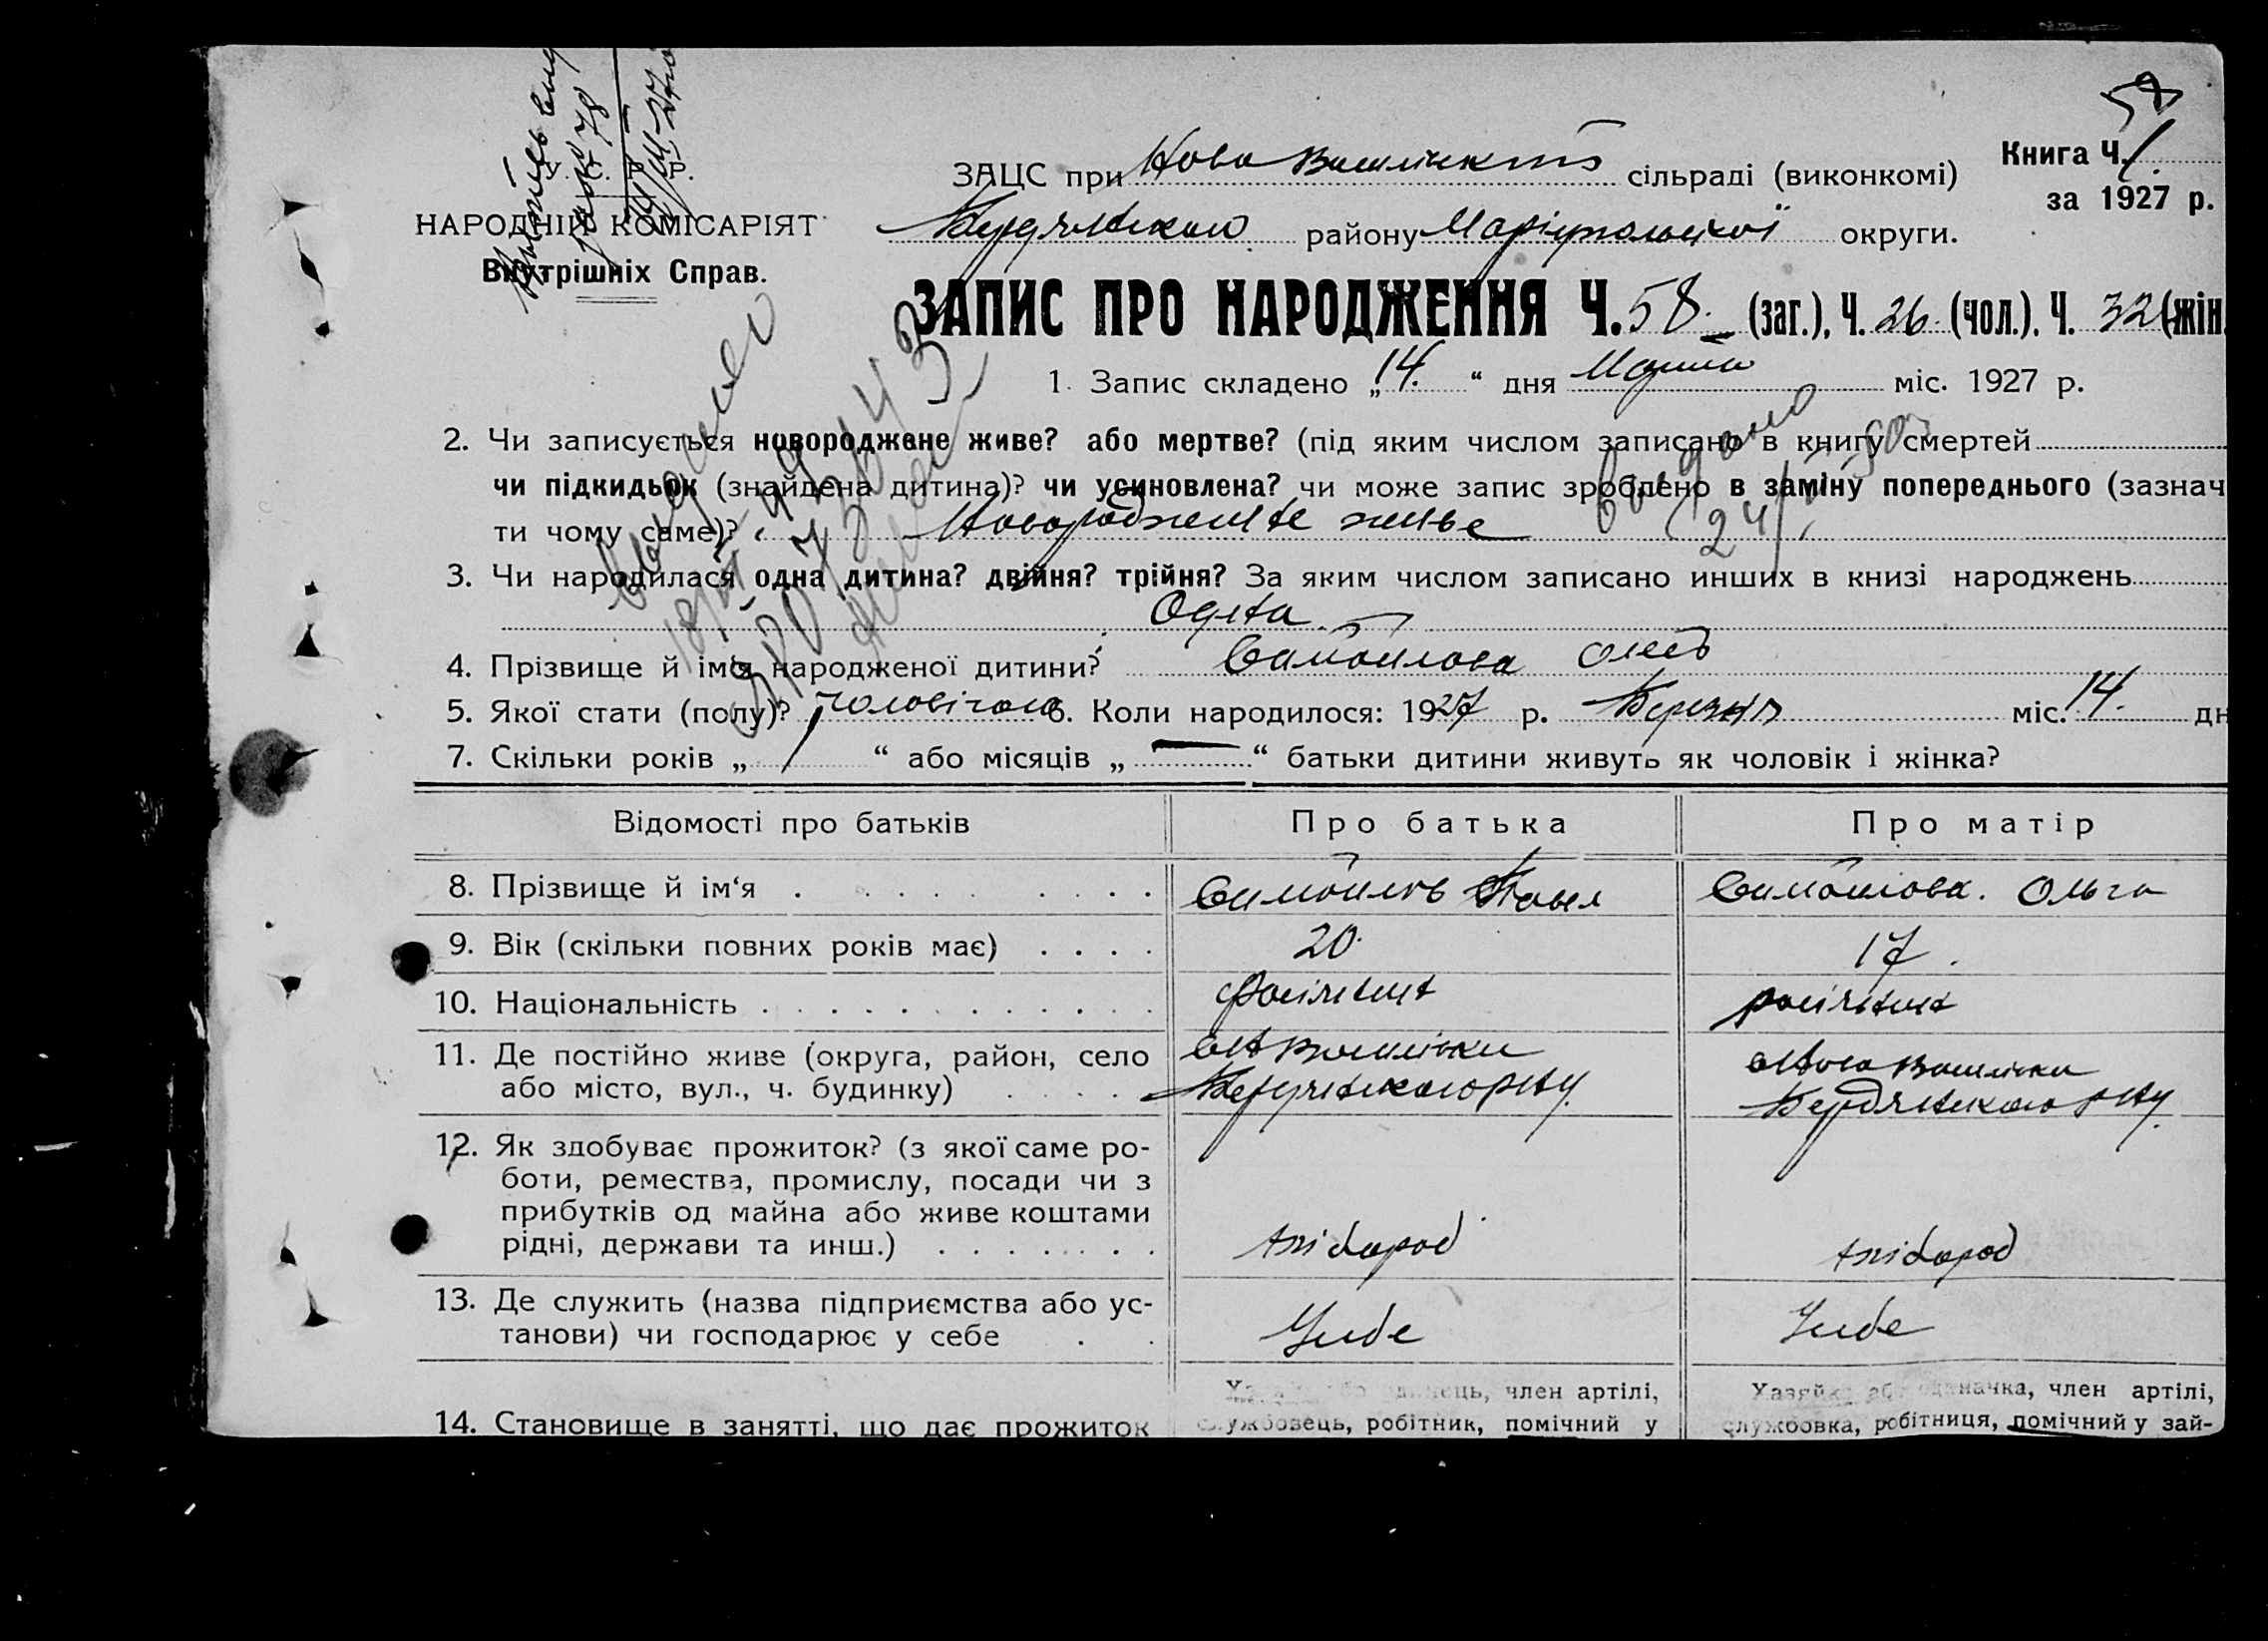 58
У. С. Р. Р.
НАРОДНІЙ КОМІСАРІЯТ
Внутрішніх Справ.
ЗАЦС при Ново Василівкій сільраді (виконкомі)
Книга Ч. 1.
за 1927 р.
Бердянського району Маріупольської округи.
ЗАПИС ПРО НАРОДЖЕННЯ Ч. 58. (заг.), Ч. 26. (чол.), Ч. 32 (жін.
1. Запис складено „ 14. “ дня Марта міс. 1927 р.
2. Чи записується новороджене живе? або мертве? (під яким числом записано в книгу смертей
чи підкидьок (знайдена дитина)? чи усиновлена? чи може запис зроблено в заміну попереднього (зазнач
ти чому саме)? Новороджене живе
видано
24/
3. Чи народилася одна дитина? двійня? трійня? За яким числом записано инших в книзі народжень
Одна
4. Прізвище й ім'я народженої дитини? Самойлова
5. Якої стати (полу)? чоловічого 6. Коли народилося: 1927 р. Березня міс. 14. дн
7. Скільки років „ 1 “ або місяців „ — “ батьки дитини живуть як чоловік і жінка?
Відомості про батьків Про батька Про матір
8. Прізвище й ім‘я Самойлов Павел Самойлова. Ольга
9. Вік (скільки повних років має) 20. 17.
10. Національність росіянин росіянин
11. Де постійно живе (округа, район, село
або місто, вул., ч. будинку) Бердянського р-ну. Бердянського р-ну.
12. Як здобуває прожиток? (з якої саме ро-
боти, ремества, промислу, посади чи з
прибутків од майна або живе коштами
рідні, держави та инш.) хлібороб хлібороб
13. Де служить (назва підприємства або ус-
танови) чи господарює у себе У себе У себе
14. Становище в занятті, що дає прожиток
член артілі,
службовець, робітник, помічний у
Хазяйка або одиначка, член артілі,
службовка, робітниця, помічний у зай-